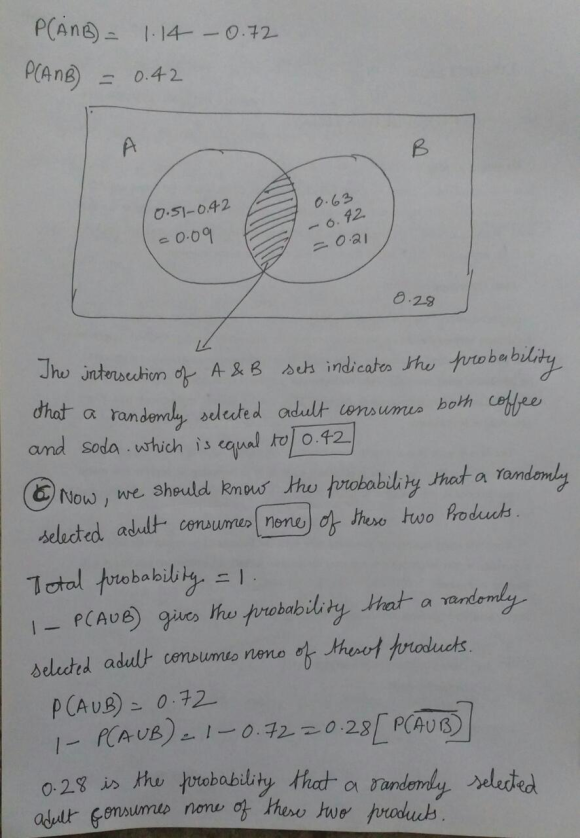 P(A∩B) = 1.14 - 0.72
P(A∩B) = 0.42
A B
0.51-0.42
= 0.09
0.63
- 0.42
= 0.21
0.28
The intersection of A & B sets indicates the probability
that a randomly selected adult consumes both coffee
and soda. which is equal to 0.42
Now, we should know the probability that a randomly
selected adult consumes none of these two Products.
Total probability = 1.
1 - P(A∪B) gives the probability that a randomly
selected adult consumes none of these products.
P(A∪B) = 0.72
1 - P(A∪B) = 1 - 0.72 = 0.28 [P(A∪B)̅]
0.28 is the probability that a randomly selected
adult consumes none of these two products.